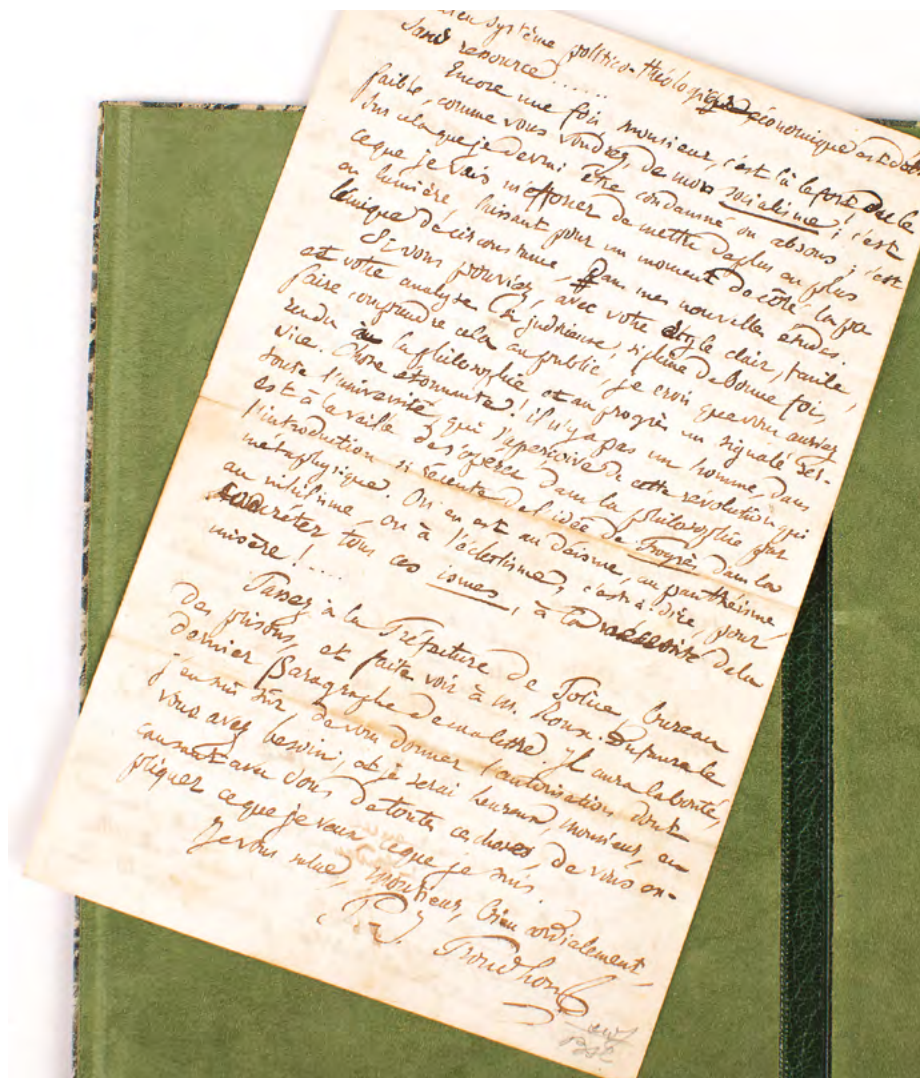 système politico-théologique économique est
sans ressource......
Encore une fois, monsieur, c'est là le fort ou le
faible, comme vous voudrez, de mon socialisme; c'est
sur cela que je devrai être condamné ou absous; c'est
ce que je vais m'efforcer de mettre de plus en plus
en lumière, laissant pour un moment de côté la po
lémique de circonstance, dans mes nouvelles études.
Si vous pouviez, avec votre style clair, facile,
et votre analyse si judicieuse, si pleine de bonne foi,
faire comprendre cela au public, je crois que vous auriez
rendu à la philosophie et au progrès un signalé ser-
vice. Chose étonnante! il n'y a pas un homme, dans
toute l'université, qui s'apperçoive de cette révolution qui
est à la veille de s'opérer dans la philosophie par
l'introduction si récente de l'idée de Progrès dans la
métaphysique. On en est au déisme, au panthéisme,
au nihilisme, ou à l'éclectisme, c'est à dire, pour
tous ces ismes, à la de la
misère!....
Passez à la Préfecture de Police, bureau
des prisons, et faite voir à M. le
dernier paragraphe de ma lettre. Il aura la bonté,
j'en suis sûr de vous donner l'autorisation dont
vous avez besoin; et je serai heureux, monsieur, en
causant avec vous de toutes ces choses, de vous ex-
pliquer ce que je veux et ce que je suis.
Je vous salue, monsieur, bien cordialement,
P. J. Proudhon